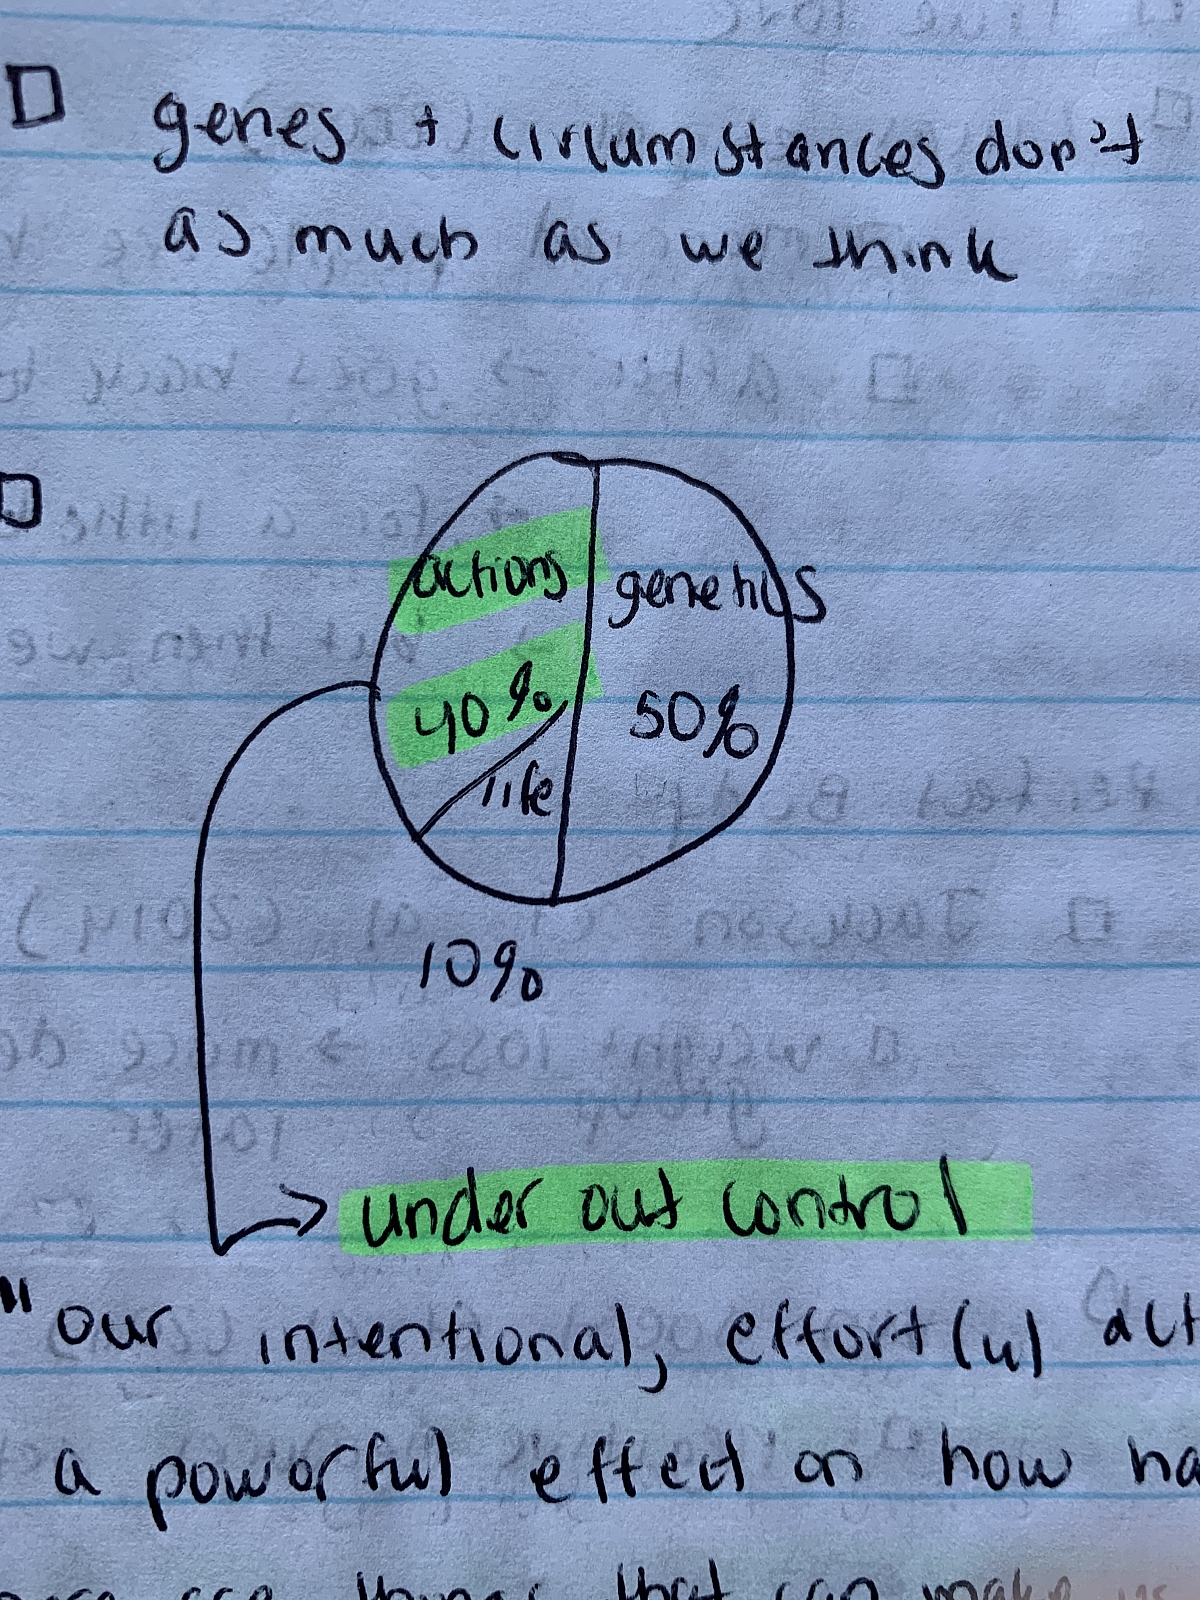 genes + circumstances don't
as much as we think
actions
genetics
40%
50%
life
10%
under out control
"our intentional, effortful
a powerful effect on how
things that can make us